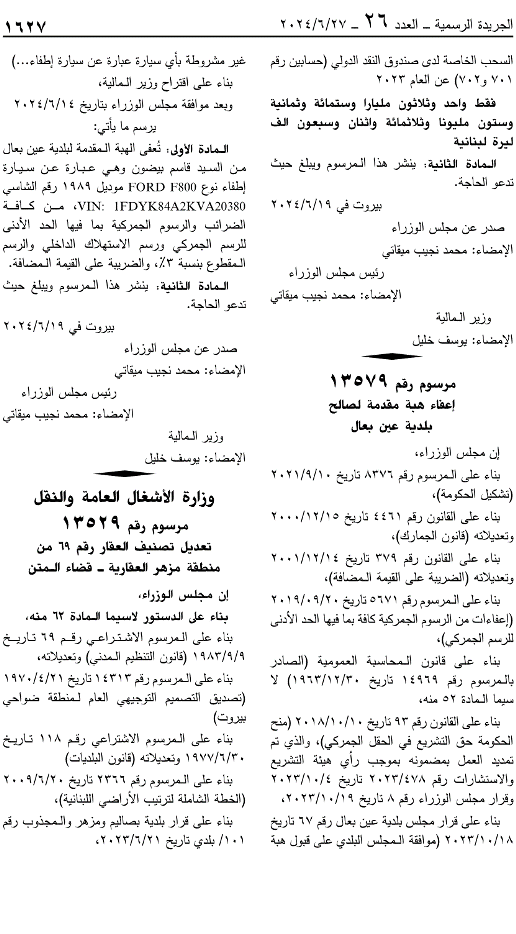 الجريدة الرسمية ــ العدد ٢٦ ــ ٢٠٢٤/٦/٢٧
١٦٢٧
السحب الخاصة لدى صندوق النقد الدولي (حسابين رقم
٧٠١ و٧٠٢) عن العام ٢٠٢٣
فقط واحد وثلاثون مليارا وستمائة وثمانية
وستون مليونا وثلاثمائة واثنان وسبعون الف
ليرة لبنانية
الـمادة الثانية: ينشر هذا الـمرسوم ويبلغ حيث
تدعو الحاجة.
بيروت في ٢٠٢٤/٦/١٩
صدر عن مجلس الوزراء
الإمضاء: محمد نجيب ميقاتي
رئيس مجلس الوزراء
الإمضاء: محمد نجيب ميقاتي
وزير الـمالية
الإمضاء: يوسف خليل
مرسوم رقم ١٣٥٧٩
إعفاء هبة مقدمة لصالح
بلدية عين بعال
إن مجلس الوزراء،
بناء على الـمرسوم رقم ٨٣٧٦ تاريخ ٢٠٢١/٩/١٠
(تشكيل الحكومة)،
بناء على القانون رقم ٤٤٦١ تاريخ ٢٠٠٠/١٢/١٥
وتعديلاته (قانون الجمارك)،
بناء على القانون رقم ٣٧٩ تاريخ ٢٠٠١/١٢/١٤
وتعديلاته (الضريبة على القيمة الـمضافة)،
بناء على الـمرسوم رقم ٥٦٧١ تاريخ ٢٠١٩/٠٩/٢٠
(إعفاءات من الرسوم الجمركية كافة بما فيها الحد الأدنى
للرسم الجمركي)،
بناء على قانون الـمحاسبة العمومية (الصادر
بالـمرسوم رقم ١٤٩٦٩ تاريخ ١٩٦٣/١٢/٣٠) لا
سيما الـمادة ٥٢ منه،
بناء على القانون رقم ٩٣ تاريخ ٢٠١٨/١٠/١٠ (منح
الحكومة حق التشريع في الحقل الجمركي)، والذي تم
تمديد العمل بمضمونه بموجب رأي هيئة التشريع
والاستشارات رقم ٢٠٢٣/٤٧٨ تاريخ ٢٠٢٣/١٠/٤
وقرار مجلس الوزراء رقم ٨ تاريخ ٢٠٢٣/١٠/١٩،
بناء على قرار مجلس بلدية عين بعال رقم ٦٧ تاريخ
٢٠٢٣/١٠/١٨ (موافقة الـمجلس البلدي على قبول هبة
غير مشروطة بأي سيارة عبارة عن سيارة إطفاء...)
بناء على اقتراح وزير الـمالية،
وبعد موافقة مجلس الوزراء بتاريخ ٢٠٢٤/٦/١٤
يرسم ما يأتي:
الـمادة الأولى: تُعفى الهبة الـمقدمة لبلدية عين بعال
مـن السـيد قاسـم بيضـون وهـي عبـارة عـن سـيارة
إطفاء نوع FORD F800 موديل ١٩٨٩ رقم الشاسي
VIN: 1FDYK84A2KVA20380، مــن كــافــة
الضرائب والرسوم الجمركية بما فيها الحد الأدنى
للرسم الجمركي ورسم الاستهلاك الداخلي والرسم
الـمقطوع بنسبة ٣٪، والضريبة على القيمة الـمضافة.
الـمادة الثانية: ينشر هذا الـمرسوم ويبلغ حيث
تدعو الحاجة.
بيروت في ٢٠٢٤/٦/١٩
صدر عن مجلس الوزراء
الإمضاء: محمد نجيب ميقاتي
رئيس مجلس الوزراء
الإمضاء: محمد نجيب ميقاتي
وزير الـمالية
الإمضاء: يوسف خليل
وزارة الأشغال العامة والنقل
مرسوم رقم ١٣٥٢٩
تعديل تصنيف العقار رقم ٦٩ من
منطقة مزهر العقارية ــ قضاء الـمتن
إن مجلس الوزراء،
بناء على الدستور لاسيما الـمادة ٦٢ منه،
بناء على الـمرسوم الاشتـراعـي رقـم ٦٩ تـاريـخ
١٩٨٣/٩/٩ (قانون التنظيم الـمدني) وتعديلاته،
بناء على الـمرسوم رقم ١٤٣١٣ تاريخ ١٩٧٠/٤/٢١
(تصديق التصميم التوجيهي العام لـمنطقة ضواحي
بيروت)
بناء على الـمرسوم الاشتراعي رقـم ١١٨ تـاريـخ
١٩٧٧/٦/٣٠ وتعديلاته (قانون البلديات)
بناء على الـمرسوم رقم ٢٣٦٦ تاريخ ٢٠٠٩/٦/٢٠
(الخطة الشاملة لترتيب الأراضي اللبنانية)،
بناء على قرار بلدية بصاليم ومزهر والـمجذوب رقم
١٠١/ بلدي تاريخ ٢٠٢٣/٦/٢١،